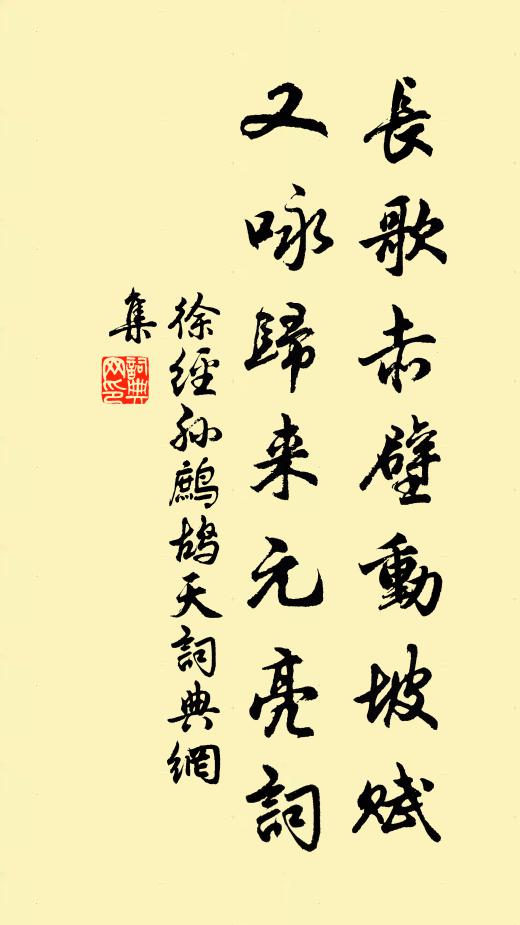 長歌赤壁動坡賦
又咏歸来元亮詞
徐經孙鷓鴣天詞典網
集
詞典
网印